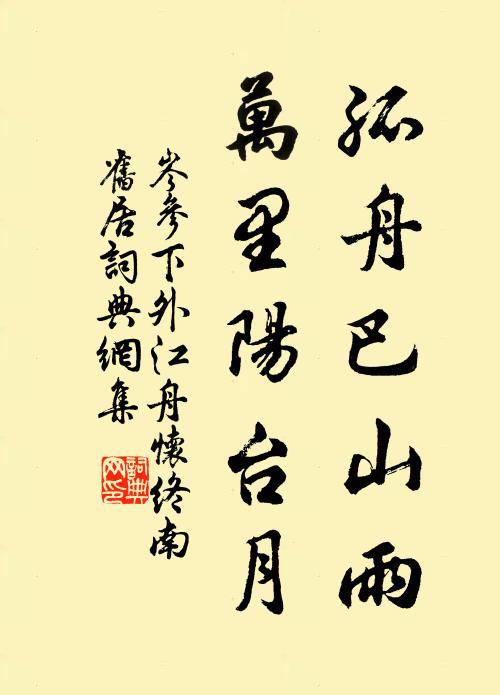 孤舟巴山雨
萬里陽台月
岑參下外江舟懷終南
舊居詞典網集
詞典网印